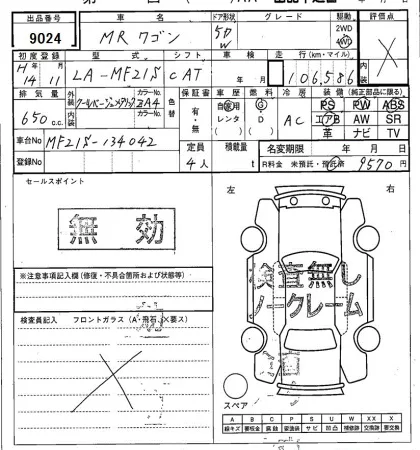 出品番号 車名 ドア形状 グレード 駆動 評価点
9024 MRワゴン 5D W 2WD 4WD
初度登録 型式 シフト 車検 走行(km・マイル)
H14 11 LA-MF21S CAT 年 月 106,586
排気量 外装 内装 カラーNo. 色替 保証書 車歴 燃料 冷房 装備(純正部品に限る)
650 c.c. クールベージュメタリック ZA4 カラーNo. 有・無 自家用 レンタ G D AC PS PW ABS
エアB AW SR
革 ナビ TV
車台No MF21S-134042 定員 積載量 名変期限 年 月 日
登録No 4人 t R料金 未預託・預託済 9570 円
セールスポイント
無効
左 右
※注意事項記入欄(修復・不具合箇所および状態等)
検査無し
ノークレーム
検査員記入 フロントガラス(A・飛石・X要ス)
スペア
A B C P S U W XX X
線キズ 要板金 腐蝕 要塗装 サビ 凹凸 補修跡 交換跡 要交換